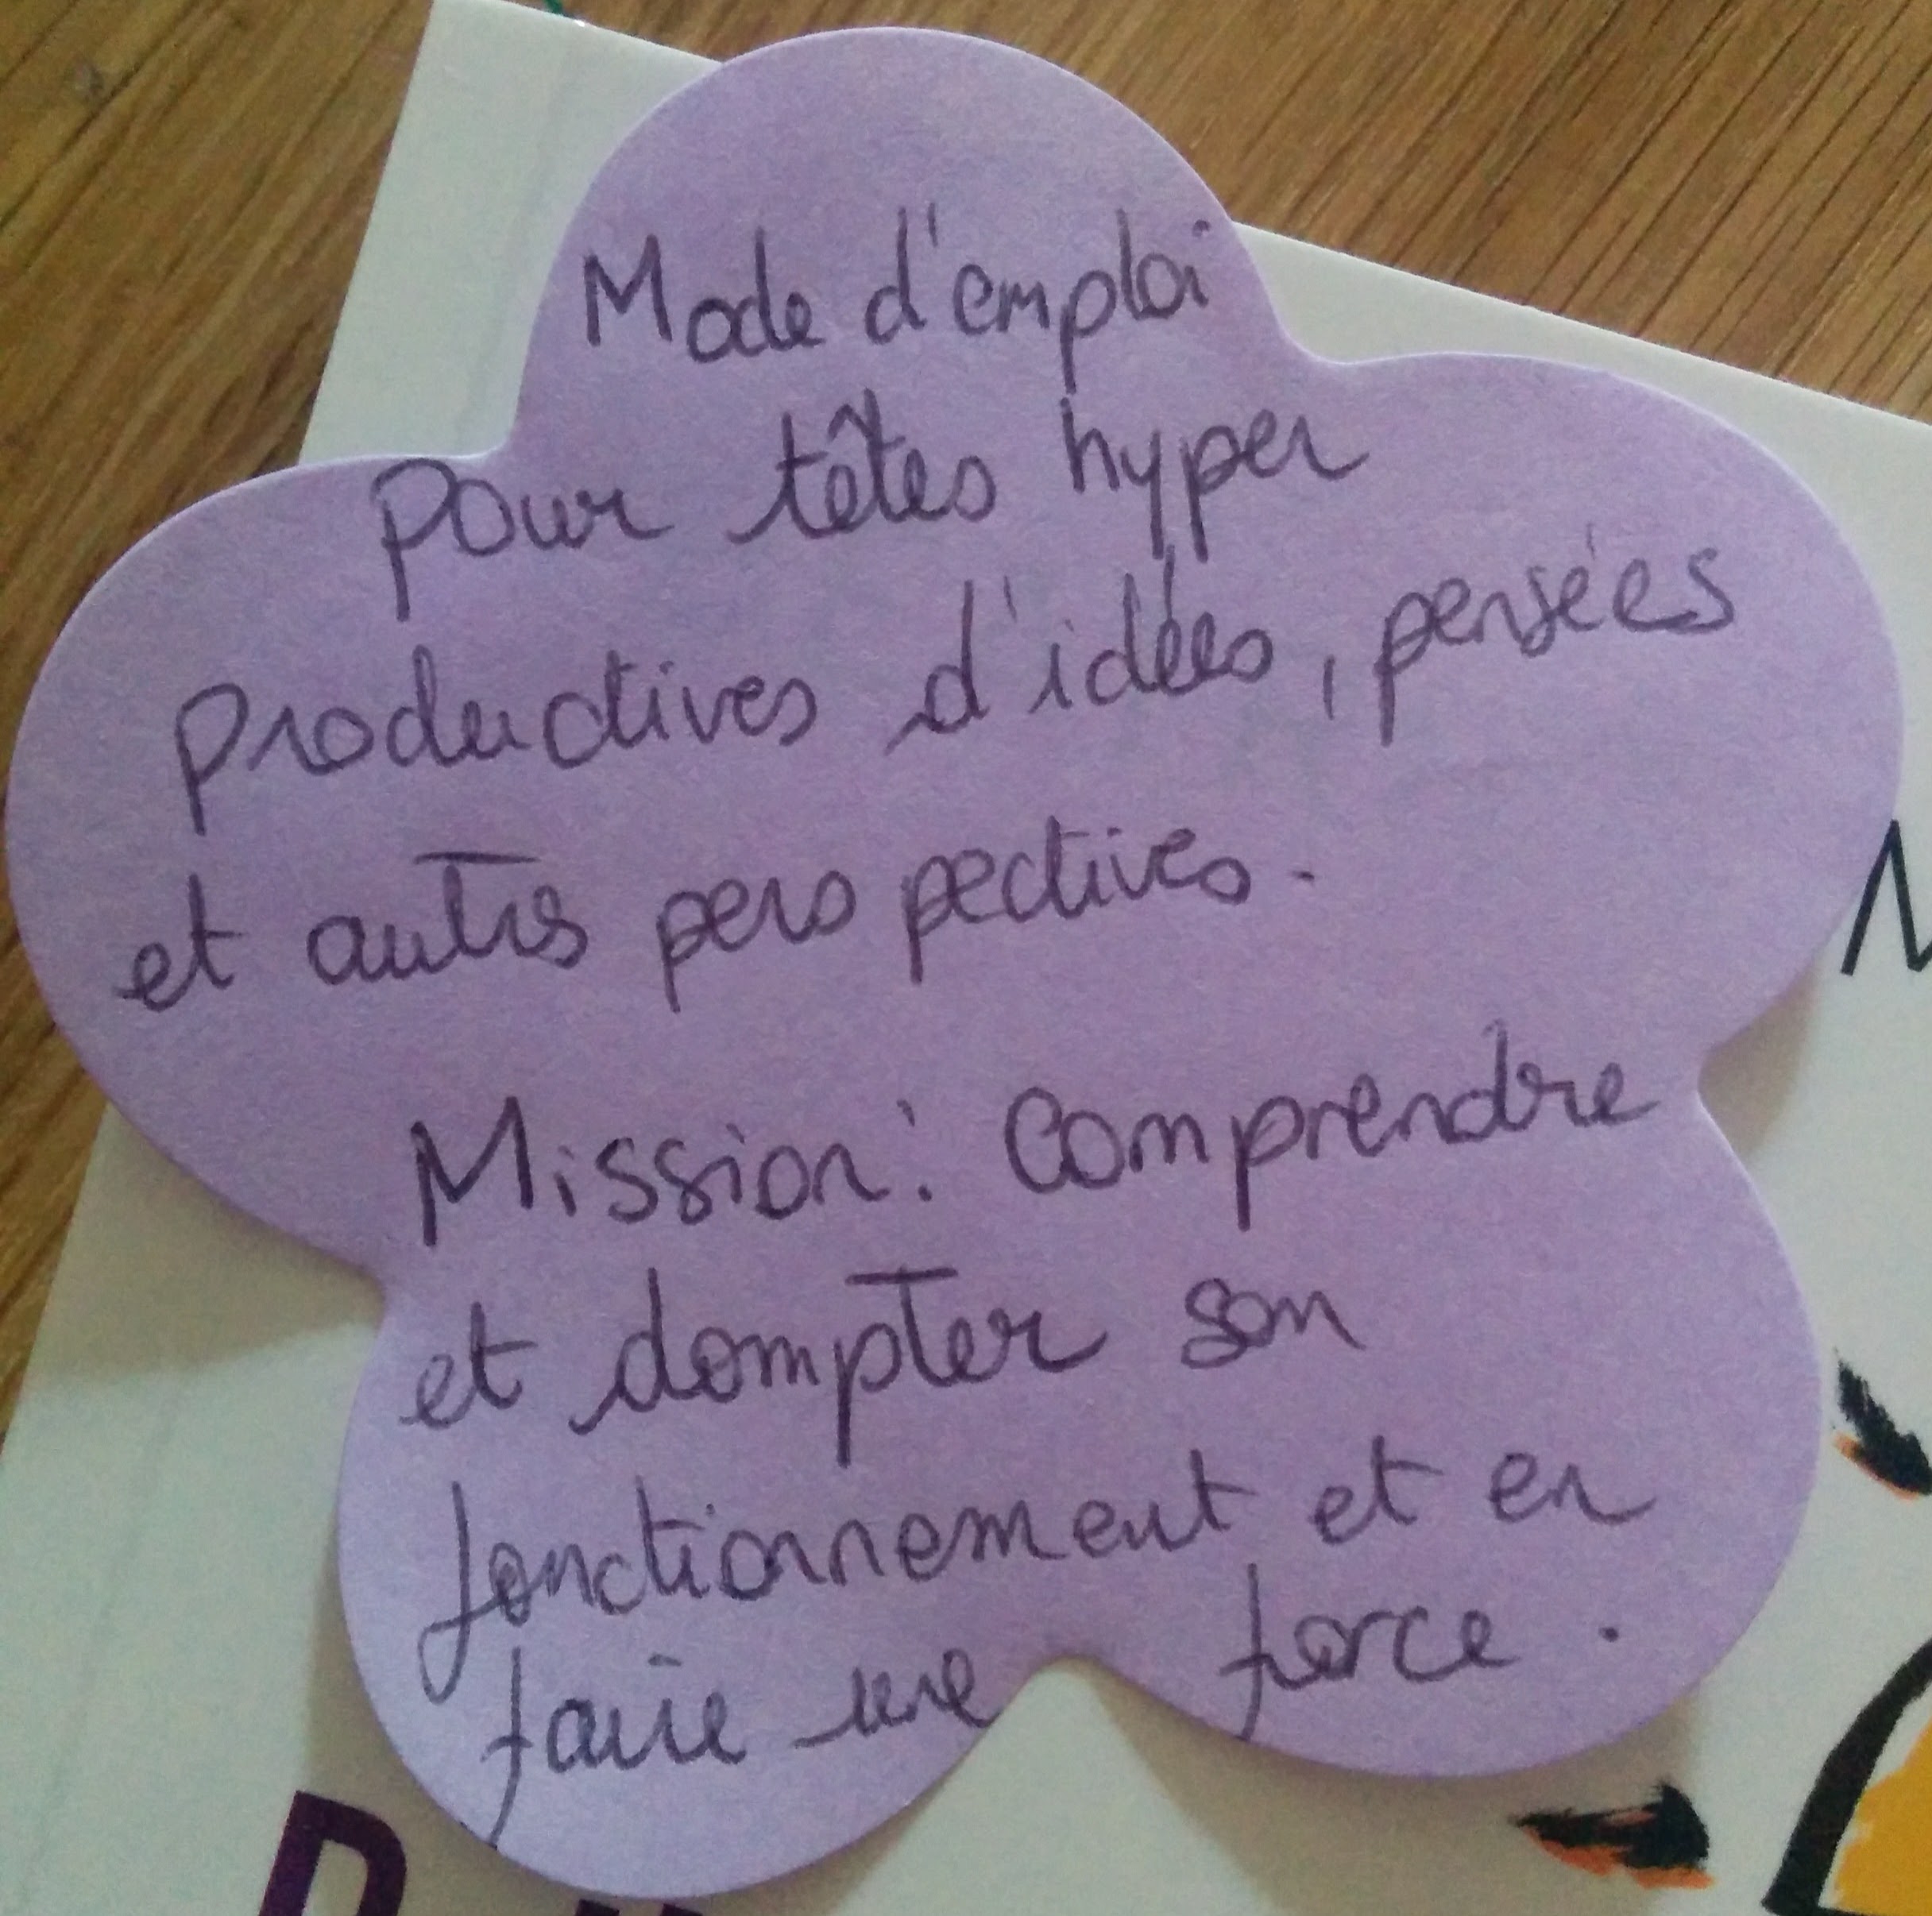 Mode d'emploi
pour têtes hyper
productives d'idées, pensées
et autres perspectives.
Mission: Comprendre
et dompter son
fonctionnement et en
faire une force.